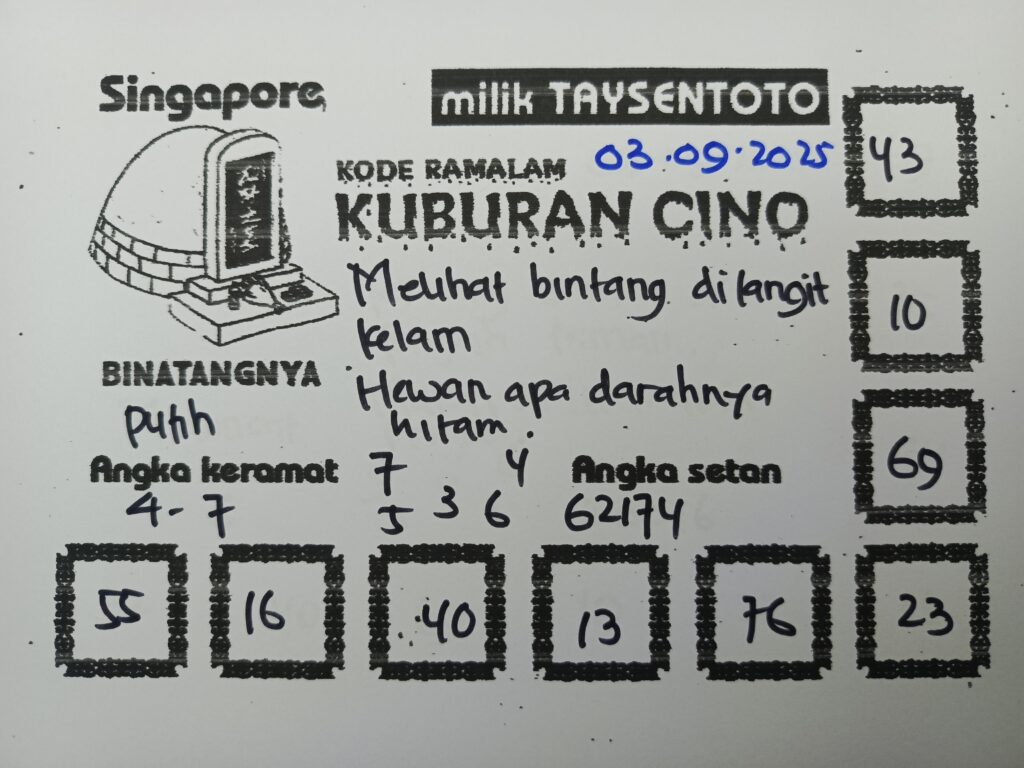 Singapore
milik TAYSENTOTO
03.09.2025
KODE RAMALAM
KUBURAN CINO
Melihat bintang di langit
kelam
Hewan apa darahnya
hitam.
BINATANGNYA
putih
Angka keramat
4 - 7
7 4
5 3 6
Angka setan
62174
43
10
69
55
16
40
13
76
23